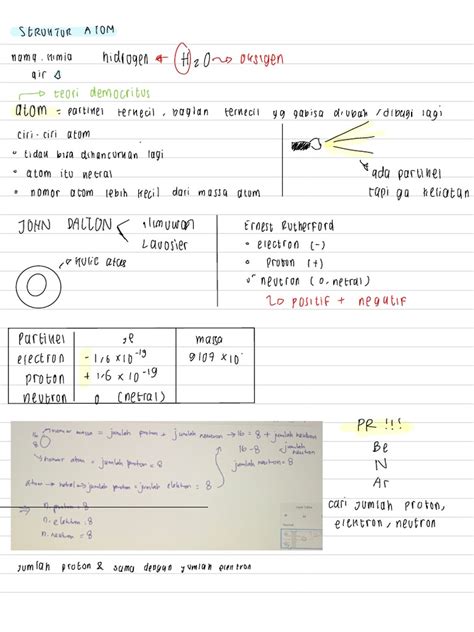 STRUKTUR ATOM
nama kimia hidrogen ← H2O → oksigen
air
→ teori democritus
atom = partikel terkecil, bagian terkecil yg gabisa diubah / dibagi lagi
ciri-ciri atom
• tidak bisa dihancurkan lagi
• atom itu netral
• nomor atom lebih kecil dari massa atom
ada partikel
tapi ga keliatan
JOHN DALTON < ilmuwan
Lavosier
kulit atas
Ernest Rutherford
• electron (-)
• proton (+)
• neutron (0, netral)
20 positif + negatif
partikel massa
electron -1,6 x 10-19 9109 x 10
proton +1,6 x 10-19
neutron 0 (netral)
nomor massa = jumlah proton + jumlah neutron → 16 = 8 + jumlah neutron
16-8 jumlah neutron
jumlah neutron = 8
nomor atom = jumlah proton = 8
atom → netral → jumlah proton = jumlah elektron = 8
⇒ n. proton = 8
n. elektron = 8
n. neutron = 8
PR !!!
Be
N
Ar
cari jumlah proton,
elektron, neutron
jumlah proton & sama dengan jumlah electron